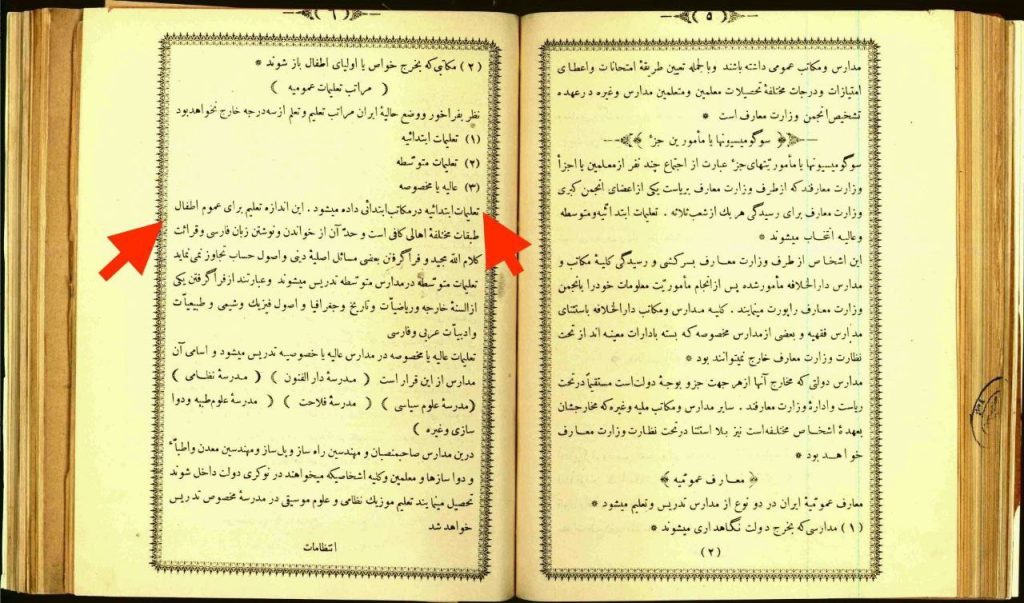 ﴿ ٥ ﴾
مدارس ومکاتب عمومی داشته باشند وبا لجمله تعیین طریقهٔ امتحانات واعطای
امتیازات ودرجات مختلفهٔ تحصیلات معلمین ومتعلمین مدارس وغیره درعهده
تشخیص انجمن وزارت معارف است *
﴿ سوکومیسیونها یا مأمورین جزء ﴾
سوکومیسیونها یا مأموریتهای جزء عبارت از اجتماع چند نفر از معلمین یا اجزأ
وزارت معارفند که از طرف وزارت معارف بریاست یکی ازاعضای انجمن کبری
وزارت معارف برای رسیدگی هر یك از شعب ثلاثه . تعلیمات ابتدائیه ومتوسطه
وعالیه انتخاب میشوند *
این اشخاص از طرف وزارت معارف بسرکشی و رسیدگی کلیهٔ مکاتب و
مدارس دارالخلافه مأمور شده پس از انجام مأموریت معلومات خودرا بانجمن
وزارت معارف راپورت مینمایند . کلیه مدارس ومکاتب دارالخلافه باستثنای
مدارس فقهیه و بعضی از مدارس مخصوصه که بسته بادارات معینه اند از تحت
نظارت وزارت معارف خارج نمیتوانند بود *
مدارس دولتی که مخارج آنها ازهر جهت جزو بودجهٔ دولت است مستقیماً درتحت
ریاست وادارهٔ وزارت معارفند . سایر مدارس ومکاتب ملیه وغیره که مخارجشان
بعهدهٔ اشخاص مختلفه است نیز بلا استثنا درتحت نظارت وزارت معارف
خواهد بود *
﴿ معارف عمومیه ﴾
معارف عمومیهٔ ایران در دو نوع از مدارس تدریس وتعلیم میشود *
(١) مدارسی که بخرج دولت نگاهداری میشوند *
(٢)
﴿ ٦ ﴾
(٢) مکاتبی که بخرج خواص یا اولیای اطفال باز شوند *
( مراتب تعلیمات عمومیه )
نظر بفراخور ووضع حالیهٔ ایران مراتب تعلیم وتعلم از سه درجه خارج نخواهد بود
(١) تعلیمات ابتدائیه
(٢) تعلیمات متوسّطه
(٣) عالیه یا مخصوصه
تعلیمات ابتدائیه در مکاتب ابتدائی داده میشود . این اندازه تعلیم برای عموم اطفال
طبقات مختلفهٔ اهالی کافی است و حدّ آن از خواندن ونوشتن زبان فارسی وقرائت
کلام الله مجید و فراگرفتن بعضی مسائل اصلیهٔ دینی واصول حساب تجاوز نمی نماید
تعلیمات متوسّطه در مدارس متوسطه تدریس میشوند وعبارتند از فراگرفتن یکی
از السنهٔ خارجه وریاضیات و تاریخ وجغرافیا و اصول فیزیك وشیمی و طبیعیّات
وادبیّات عربی وفارسی
تعلیمات عالیه یا مخصوصه در مدارس عالیه یا خصوصیه تدریس میشود و اسامی آن
مدارس از این قرار است ( مدرسهٔ دار الفنون ) ( مدرسهٔ نظامی )
(مدرسهٔ علوم سیاسی ) ( مدرسهٔ فلاحت ) ( مدرسهٔ علوم طبیه ودوا
سازی وغیره )
درین مدارس صاحبمنصبان و مهندسین راه ساز وپل ساز ومهندسین معدن واطبّاء
و دوا سازها و معلمین وکلیه اشخاصیکه میخواهند در نوکری دولت داخل شوند
تحصیل مینمایند تعلیم موزیك نظامی و علوم موسیقی در مدرسهٔ مخصوص تدریس
خواهد شد
انتظامات